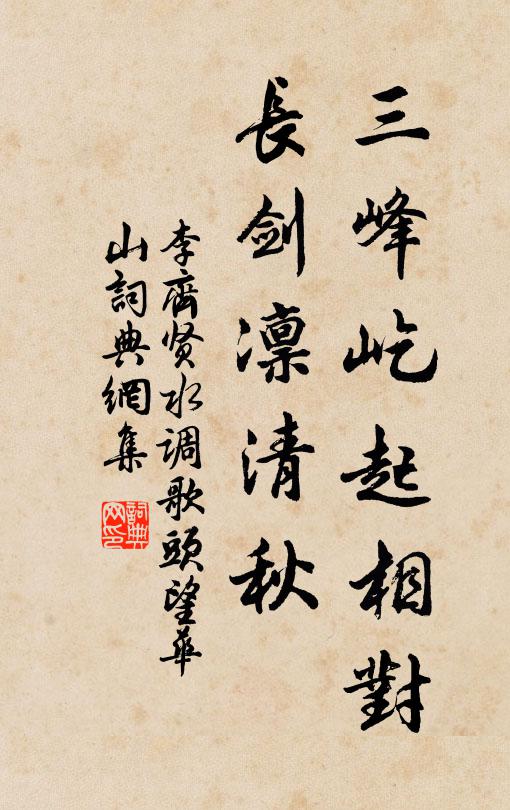 三峰屹起相對
長剑凛清秋
李齊贤水调歌頭望華
山詞典網集
詞典
网印